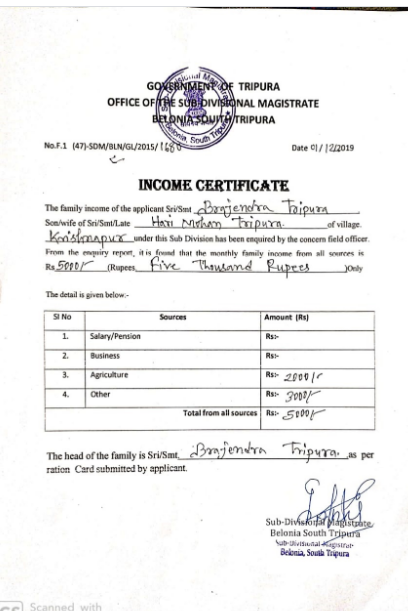 GOVERNMENT OF TRIPURA
OFFICE OF THE SUB-DIVISIONAL MAGISTRATE
BELONIA SOUTH TRIPURA
Sub-Divisional Mag
Belonia, South Tripura
No.F.1 (47)-SDM/BLN/GL/2015/ 1680
Date 01/12/2019
INCOME CERTIFICATE
The family income of the applicant Sri/Smt Brajendra Tripura
Son/wife of Sri/Smt/Late Hari Mohan Tripura. of village.
Krishnapur under this Sub Division has been enquired by the concern field officer.
From the enquiry report, it is found that the monthly family income from all sources is
Rs 5000/- (Rupees, Five Thousand Rupees )Only
The detail is given below:-
Sl No Sources Amount (Rs)
1. Salary/Pension Rs:-
2. Business Rs:-
3. Agriculture Rs:- 2000/-
4. Other Rs:- 3000/-
Total from all sources Rs:- 5000/-
The head of the family is Sri/Smt, Brajendra Tripura. as per
ration Card submitted by applicant.
Sub-Divisional Magistrate
Belonia South Tripura
Sub-Divisional Magistrate
Belonia, South Tripura
Scanned with